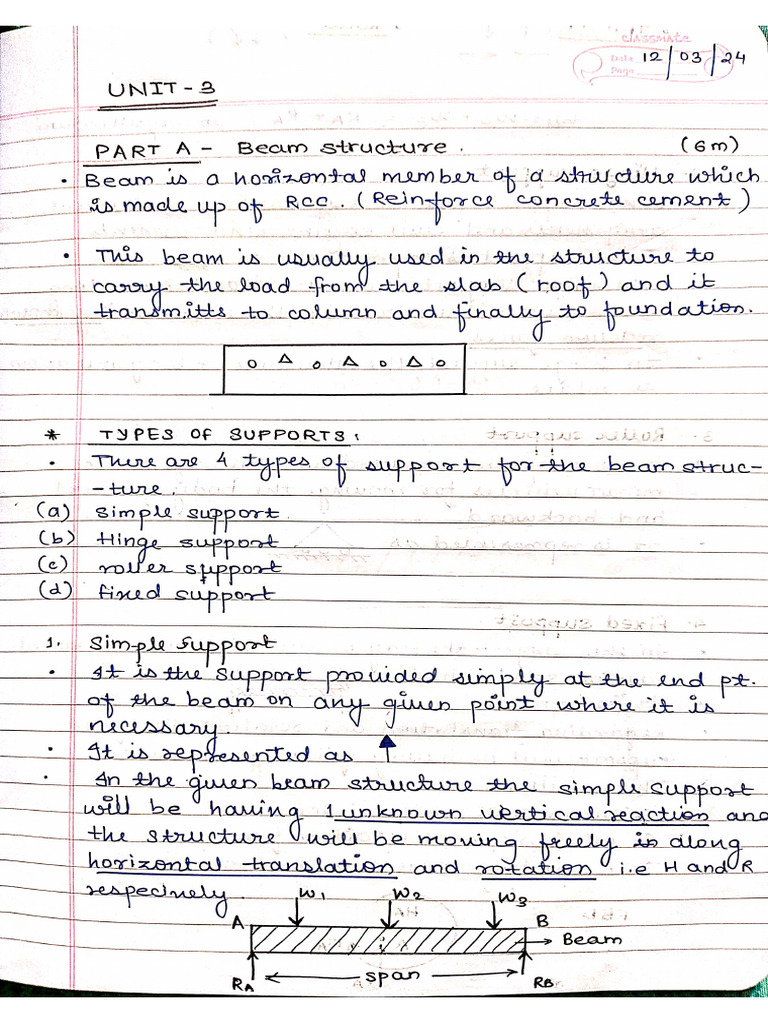 classmate
Date 12/03/24
Page
UNIT - 3
PART A - Beam structure. (6m)
• Beam is a horizontal member of a structure which
is made up of RCC. (Reinforce concrete cement)
• This beam is usually used in the structure to
carry the load from the slab (roof) and it
transmitts to column and finally to foundation.
* TYPES OF SUPPORTS:
• There are 4 types of support for the beam struc-
-ture.
(a) simple support.
(b) Hinge support.
(c) roller support
(d) fixed support
1. Simple support
• It is the support provided simply at the end pt.
of the beam on any given point where it is
necessary.
• It is represented as
• In the given beam structure the simple support
will be having 1 unknown vertical reaction and
the structure will be moving freely is along
horizontal translation and rotation i.e H and R
respecinely.
W1 W2 W3
A B
Beam
RA span RB